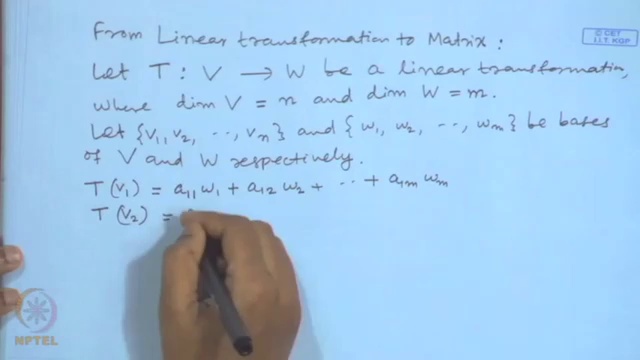 © CET
I.I.T. KGP
From Linear transformation to Matrix :
Let T : V → W be a linear transformation,
where dim V = n and dim W = m.
Let {v₁, v₂, ··, vₙ} and {w₁, w₂, ··, wₘ} be bases
of V and W respectively.
T(v₁) = a₁₁w₁ + a₁₂w₂ + ·· + a₁ₘwₘ
T(v₂) =
NPTEL